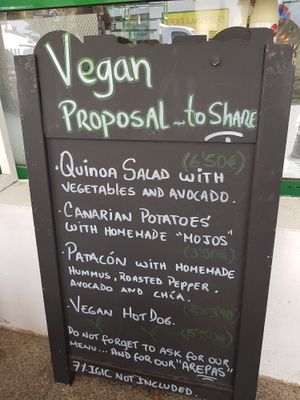 SUPERMARKET
Vegan
PROPOSAL...to SHARE
(6'50€)
· QUINOA SALAD WITH
VEGETABLES AND AVOCADO.
· CANARIAN POTATOES
WITH HOMEMADE "MOJOS"
(3'50€)
· PATACÓN WITH HOMEMADE
HUMMUS, ROASTED PEPPER,
AVOCADO AND CHÍA.
· VEGAN HOT DOG.
(5'50€)
DO NOT FORGET TO ASK FOR OUR
MENU... AND FOR OUR "AREPAS"
7% IGIC NOT INCLUDED.